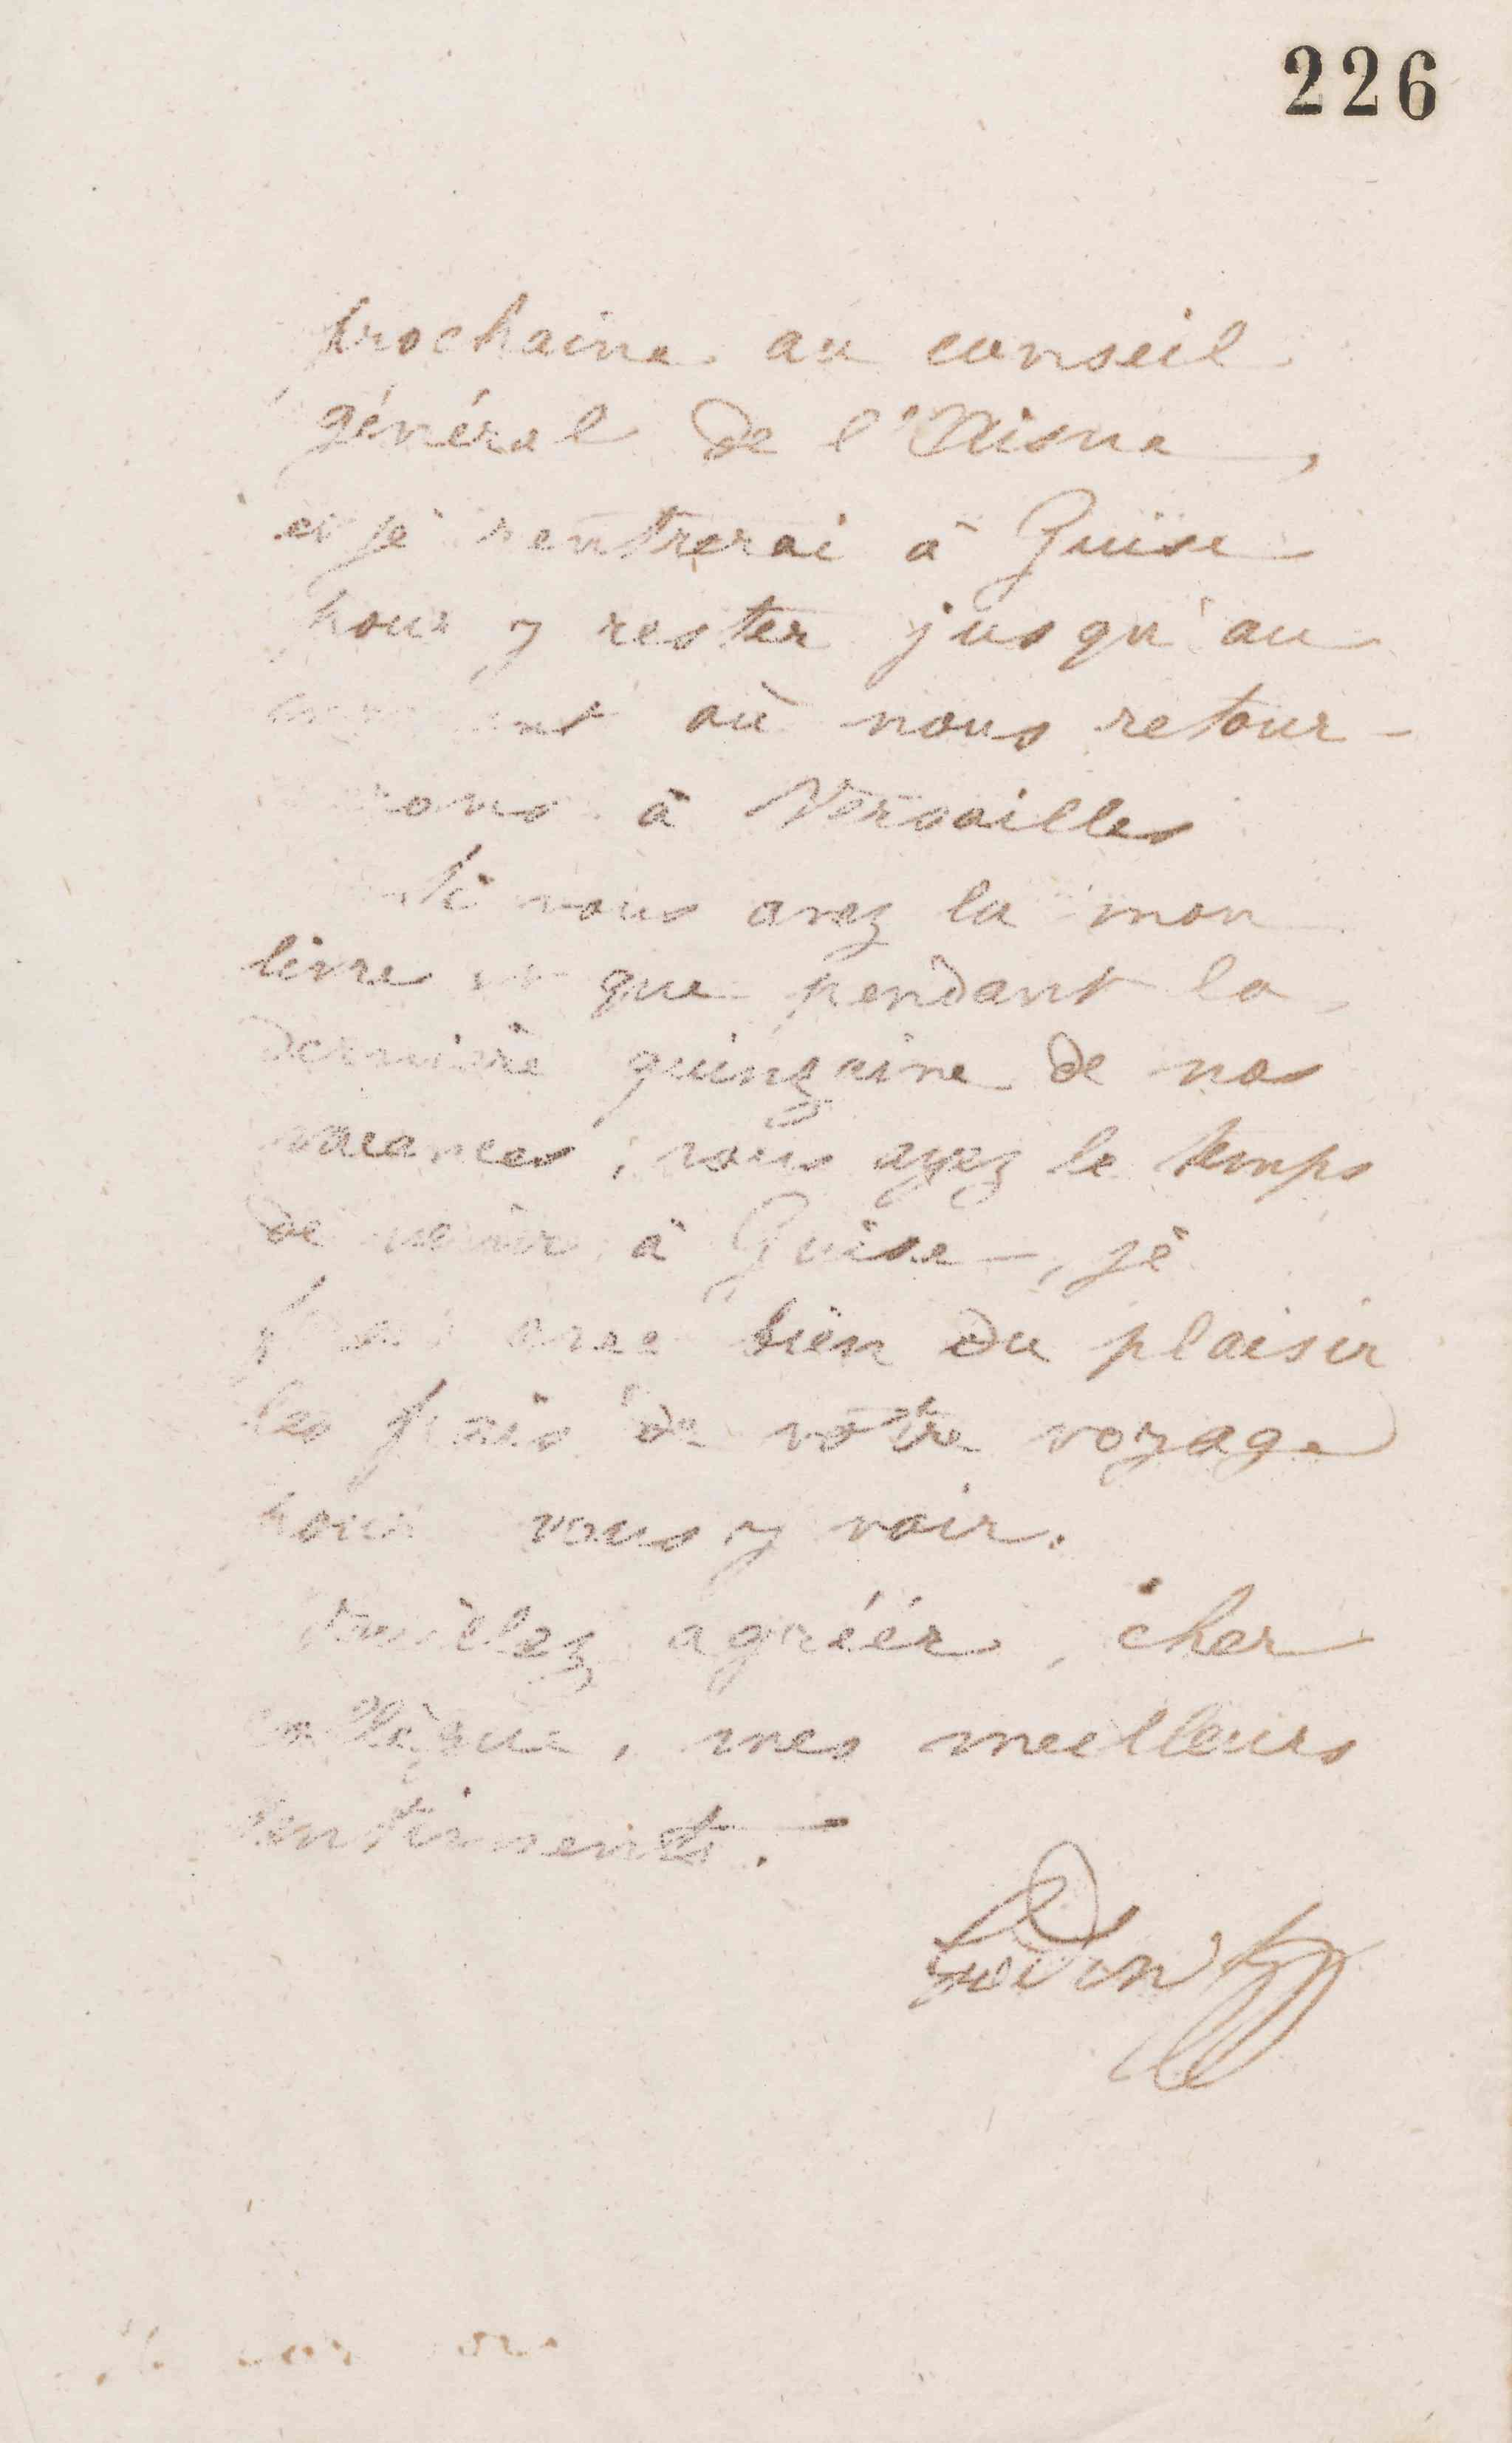 226
prochaine au conseil
général de l'Aisne,
et je rentrerai à Guise
pour y rester jusqu'au
moment où nous retour-
rons à Versailles
Si vous avez lu mon
livre et que pendant la
dernière quinzaine de nos
vacances, vous ayez le temps
de venir à Guise, je
ferai avec bien du plaisir
les frais de votre voyage
pour vous y voir.
Veuillez agréér, cher
collègue, mes meilleurs
sentiments.
Godin